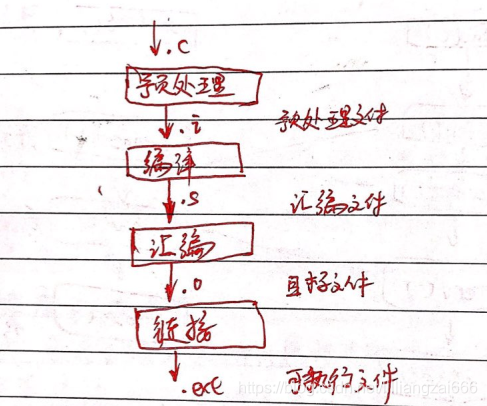 .c
预处理
.i 预处理文件
编译
.s 汇编文件
汇编
.o 目标文件
链接
.exe 可执行文件